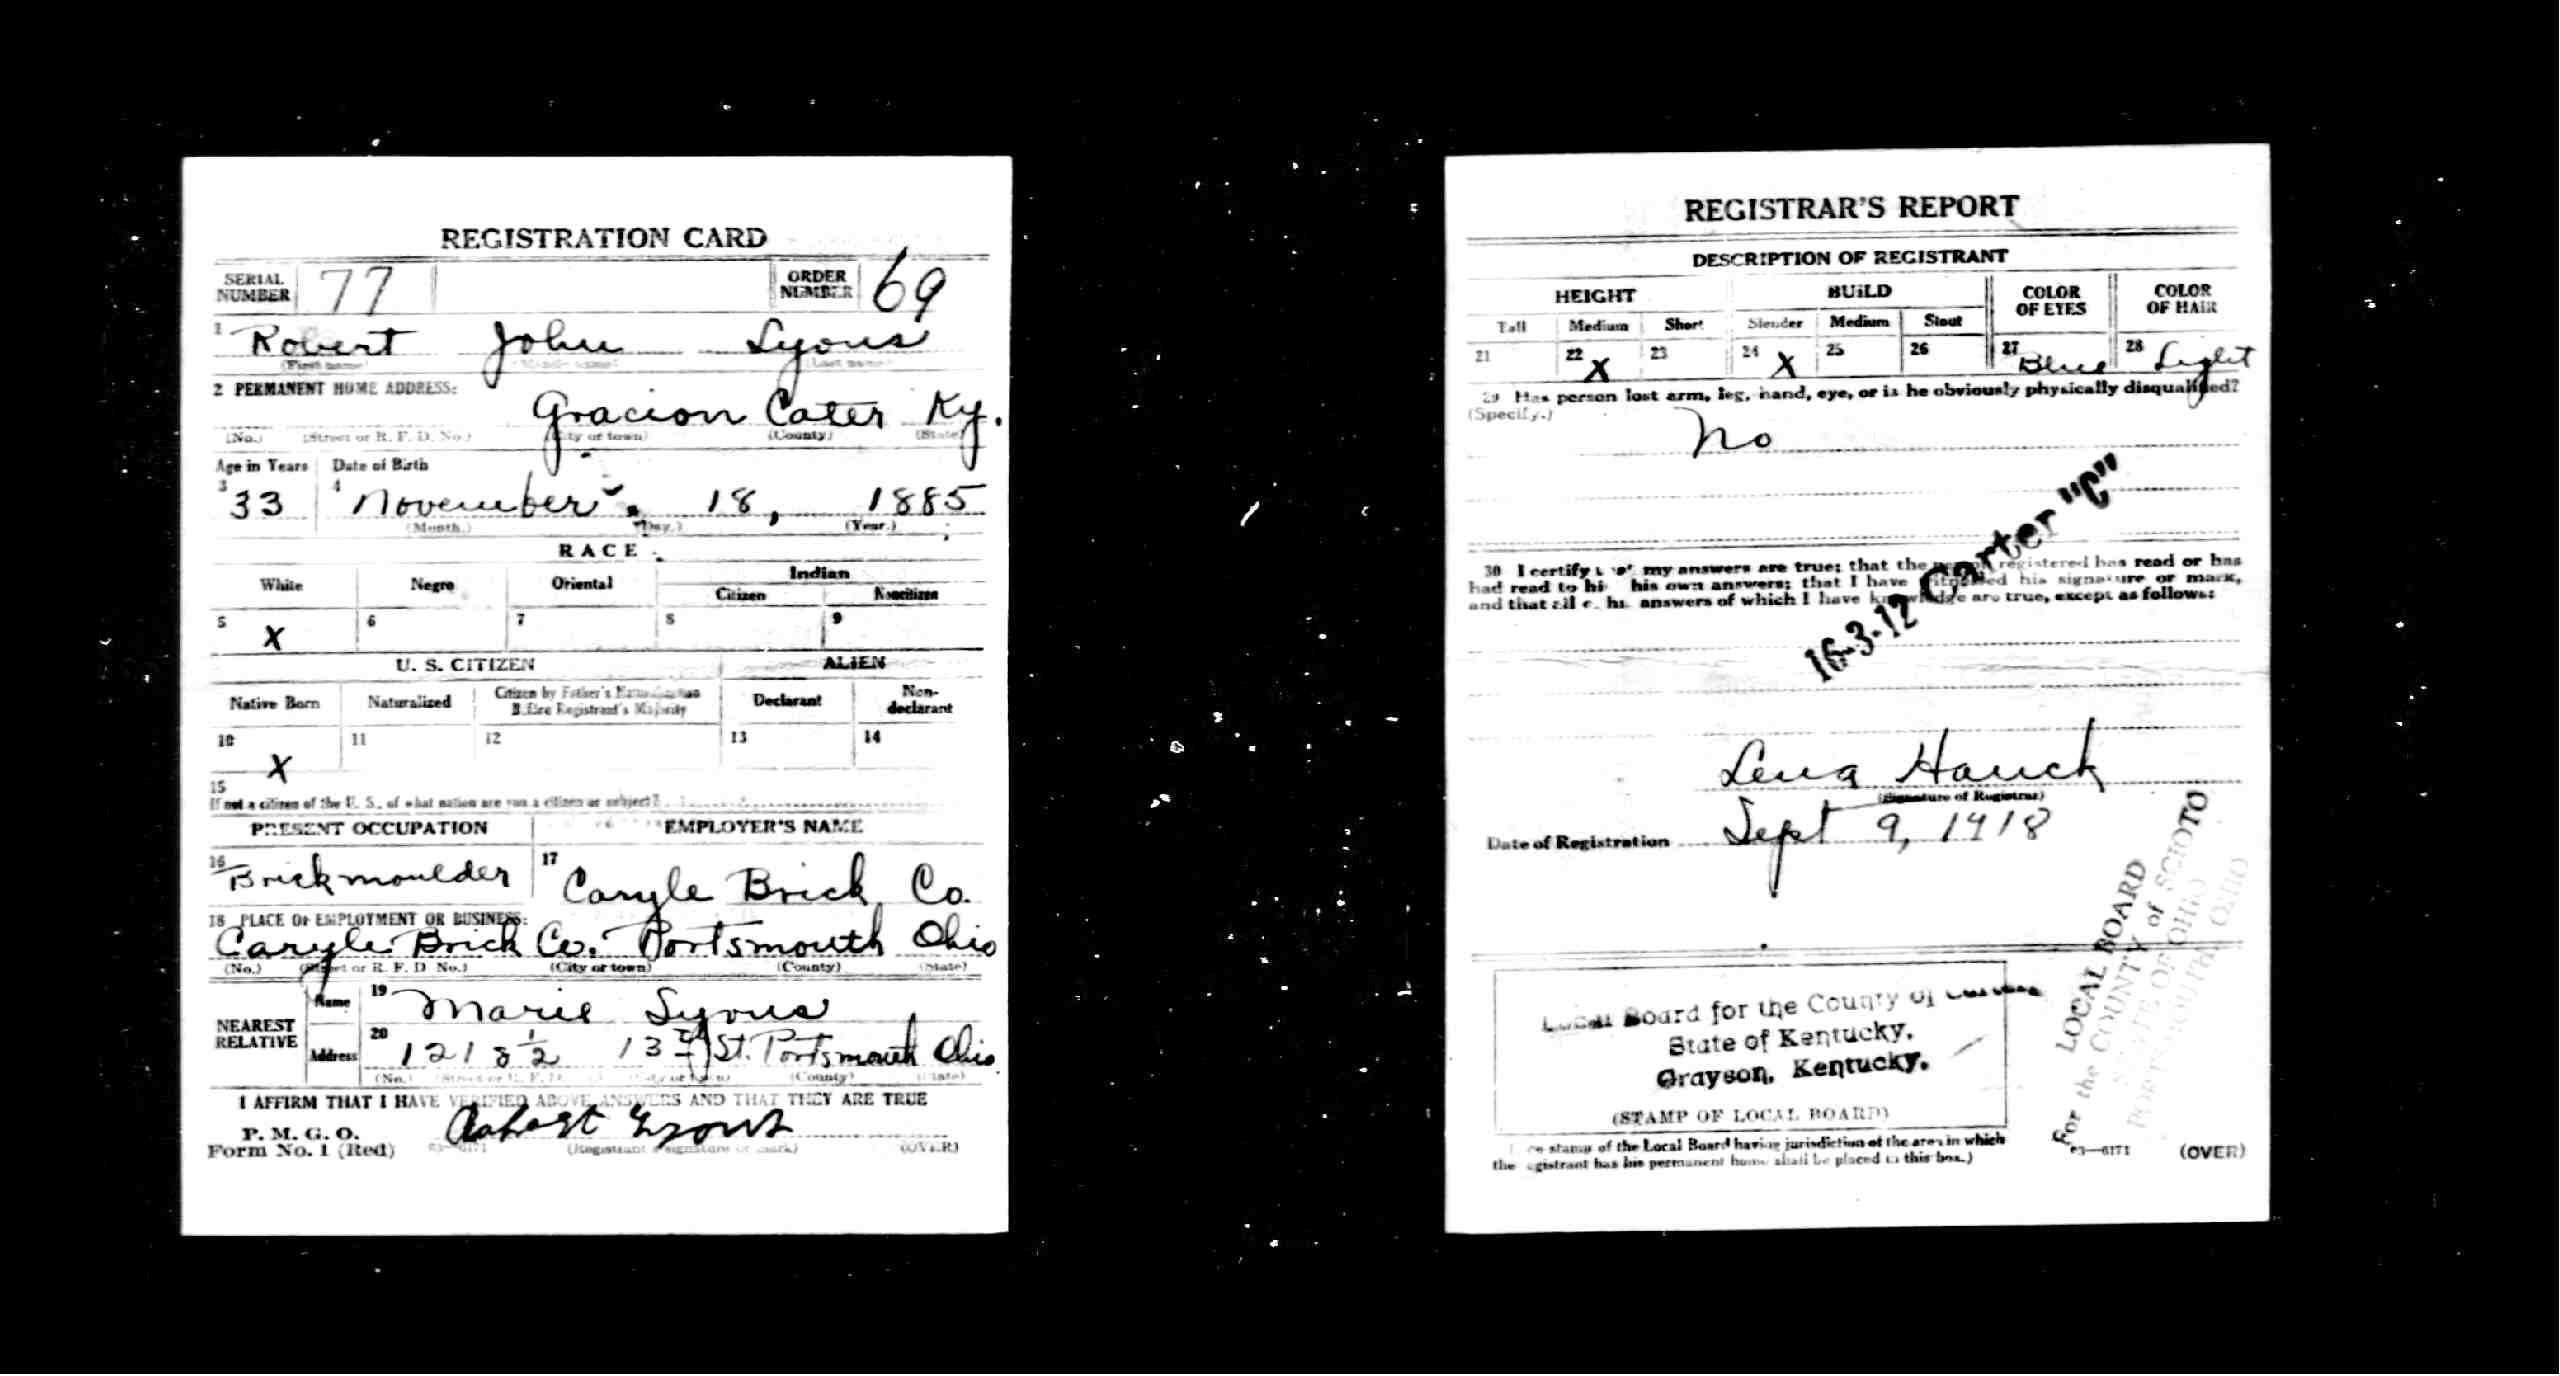 REGISTRATION CARD
SERIAL NUMBER 77 ORDER NUMBER 69
1 Robert John Lyons
(First name) (Middle name) (Last name)
2 PERMANENT HOME ADDRESS:
Gracion Cater Ky.
(No.) (Street or R. F. D. No.) (City or town) (County) (State)
Age in Years Date of Birth
3 33 4 November 18, 1885
(Month.) (Day.) (Year.)
RACE
White Negro Oriental Indian
Citizen Noncitizen
5 X 6 7 8 9
U. S. CITIZEN ALIEN
Native Born Naturalized Citizen by Father's Naturalization Before Registrant's Majority Declarant Non-declarant
10 X 11 12 13 14
15
If not a citizen of the U. S., of what nation are you a citizen or subject?
PRESENT OCCUPATION EMPLOYER'S NAME
16 Brickmoulder 17 Caryle Brick Co.
18 PLACE OF EMPLOYMENT OR BUSINESS:
Caryle Brick Co. Portsmouth Ohio
(No.) (Street or R. F. D. No.) (City or town) (County) (State)
NEAREST RELATIVE Name 19 Marie Lyons
Address 20 1218 1/2 13 St. Portsmouth Ohio
(No.) (Street or R. F. D. No.) (City or town) (County) (State)
I AFFIRM THAT I HAVE VERIFIED ABOVE ANSWERS AND THAT THEY ARE TRUE
P. M. G. O.
Form No. 1 (Red) 03—6171 (Registrant's signature or mark) (OVER)
REGISTRAR'S REPORT
DESCRIPTION OF REGISTRANT
HEIGHT BUILD COLOR OF EYES COLOR OF HAIR
Tall Medium Short Slender Medium Stout
21 22 X 23 24 X 25 26 27 Blue 28 Light
29 Has person lost arm, leg, hand, eye, or is he obviously physically disqualified?
(Specify.)
No
30 I certify that my answers are true; that the person registered has read or has
had read to him his own answers; that I have witnessed his signature or mark,
and that all of his answers of which I have knowledge are true, except as follows:
16-3-12 Carter "C"
Lena Hauck
(Signature of Registrar)
Date of Registration Sept 9, 1918
LOCAL BOARD
For the COUNTY of SCIOTO
STATE OF OHIO
PORTSMOUTH, OHIO
Local Board for the County of
State of Kentucky,
Grayson, Kentucky.
(STAMP OF LOCAL BOARD)
stamp of the Local Board having jurisdiction of the area in which
the registrant has his permanent home shall be placed in this box.)
03—6171 (OVER)